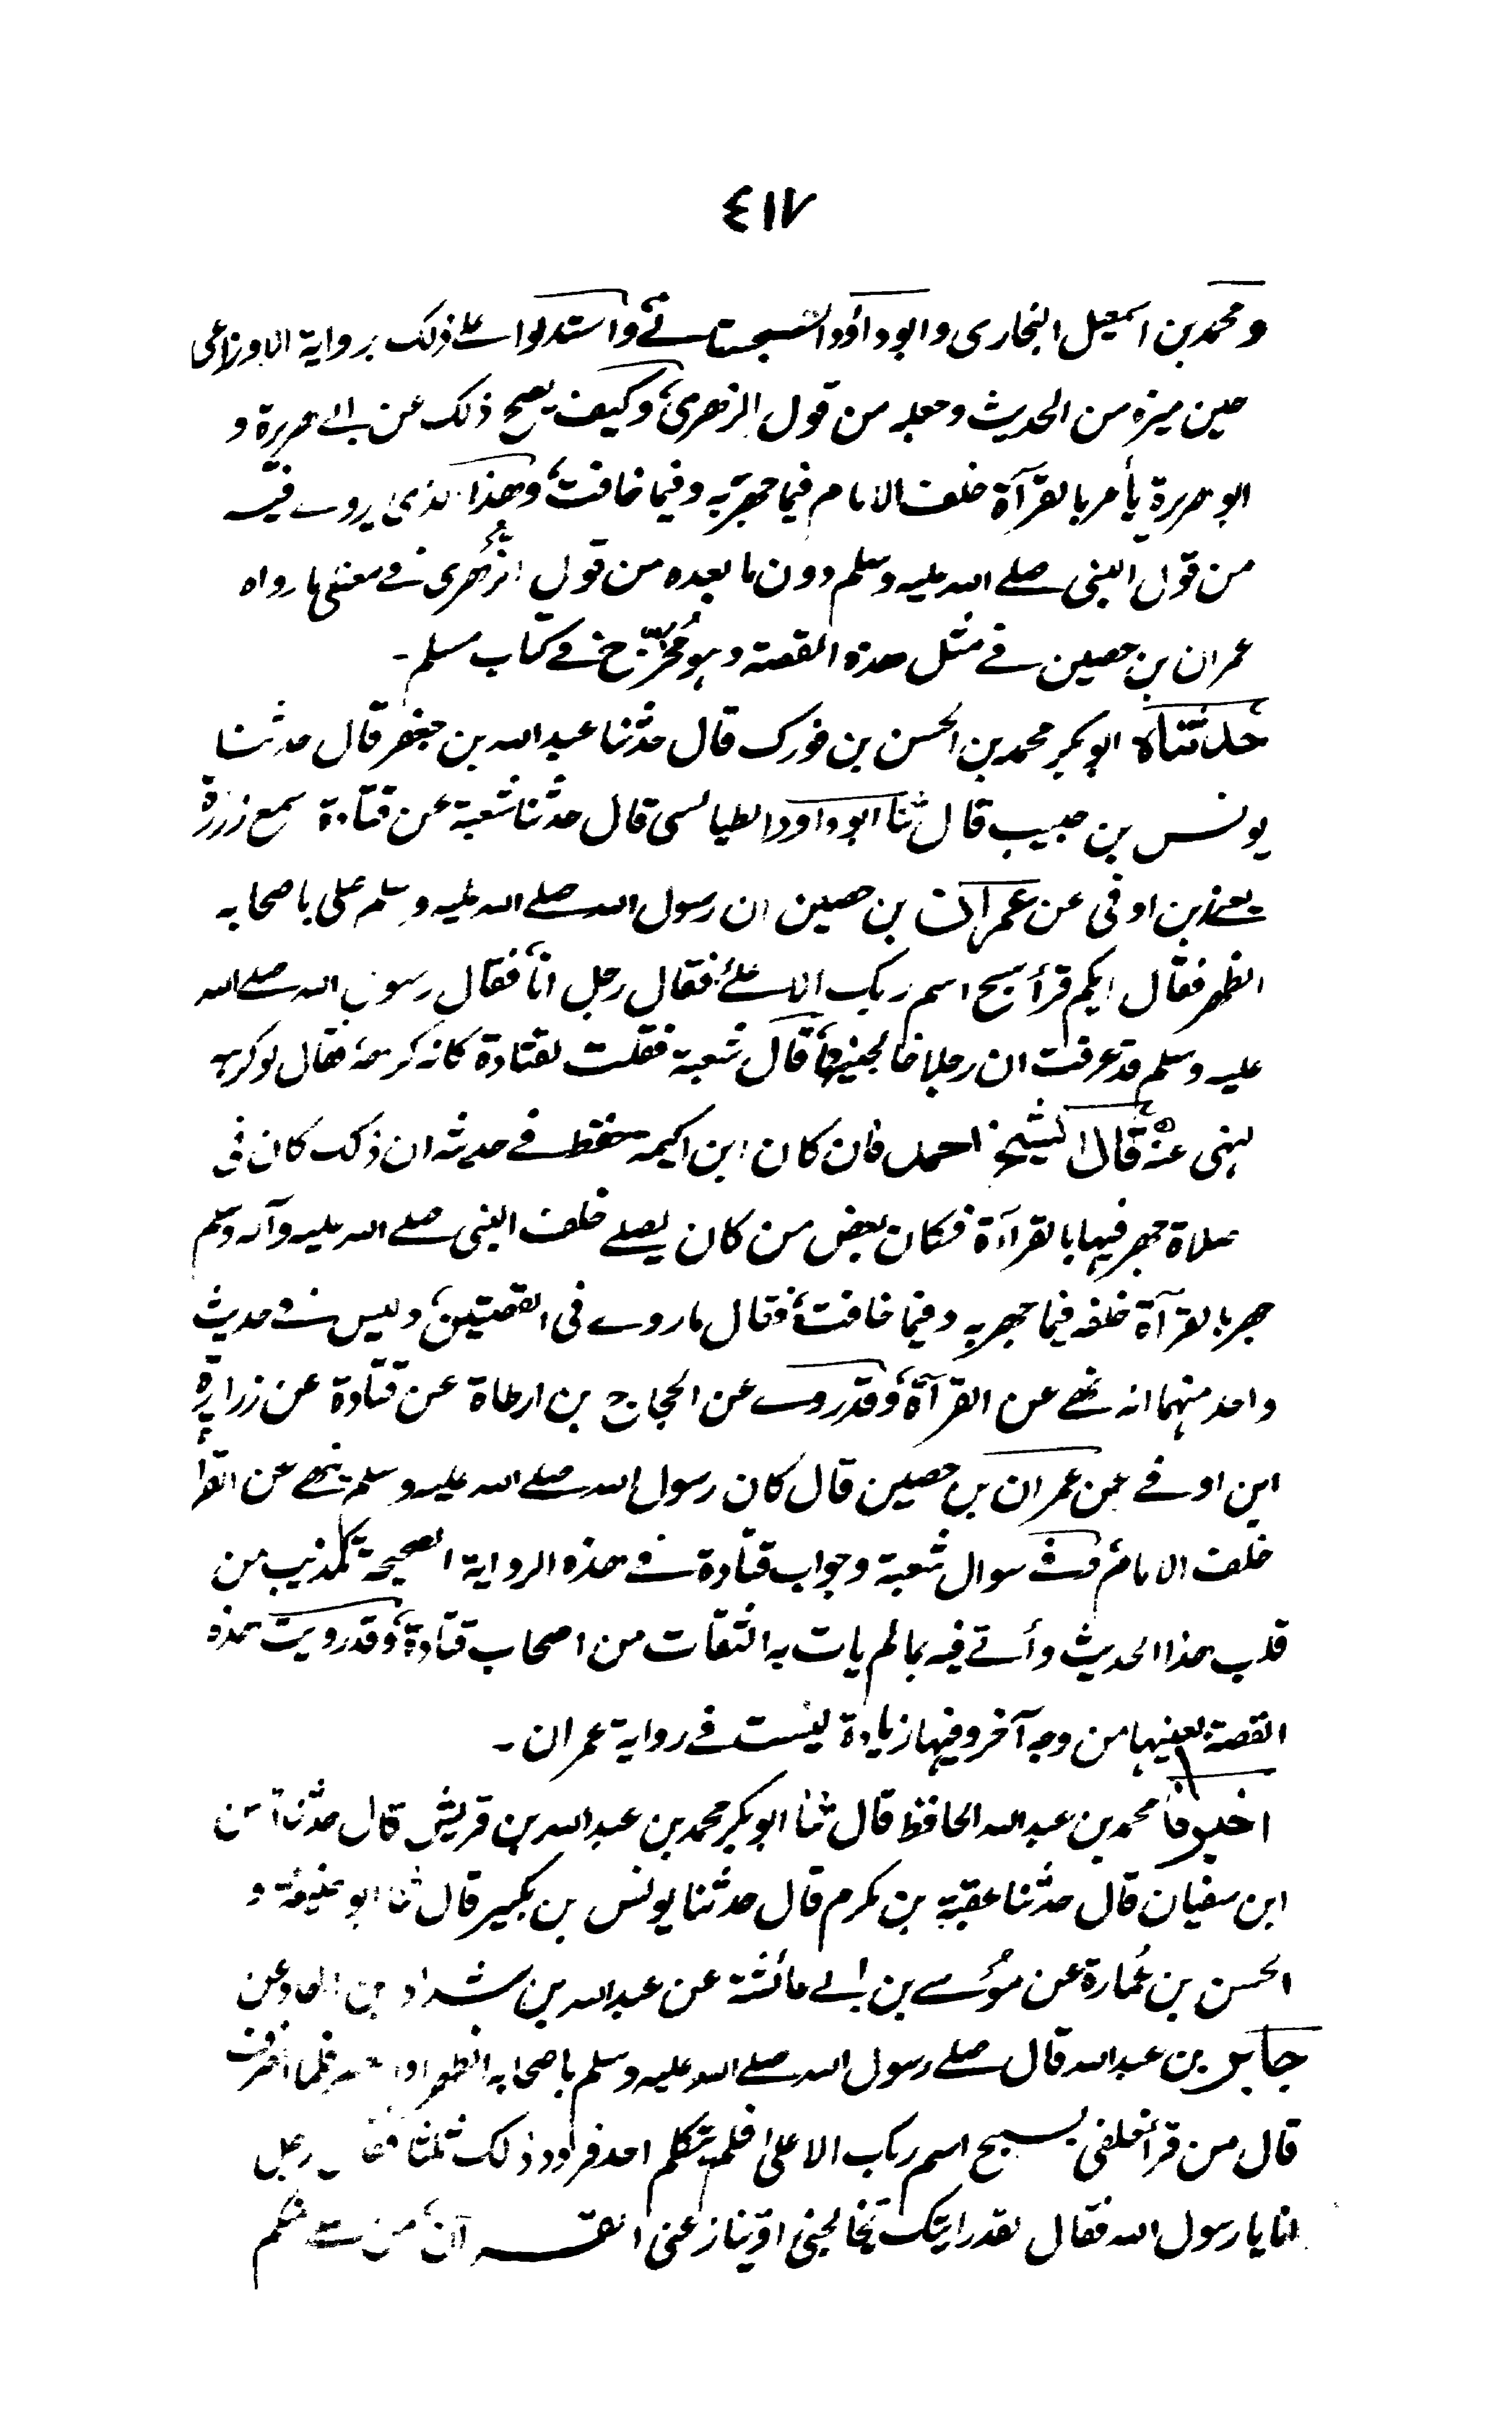 ٤١٧
ومحمد بن اسمعيل البخاری وابوداؤد السجستانے، واستدلوا علے ذلک بروایة الاوزاعی
حین میزه من الحدیث وجعله من قول الزهری، وکیف یصح ذلک عن ابے هریرة و
ابو هریرة یأمر بالقرآة خلف الامام فیما جهر به وفیما خافت، وهذا الذی یروے فیه
من قول النبی صلے الله علیه وسلم دون ما بعده من قول الزهری فے معنی ما رواه
عمران بن حصین فے مثل هذه القصة وهو مُخَرَّج فے کتاب مسلم۔
حدثناه ابوبکر محمد بن الحسن بن فورک قال حدثنا عبدالله بن جعفر قال حدثنا
یونس بن حبیب قال ثنا ابوداود الطیالسی قال حدثنا شعبة عن قتادة سمع زرارة
یعنے بن اوفی عن عمران بن حصین ان رسول الله صلے الله علیه وسلم صلی باصحابه
الظهر فقال ایکم قرأ سبح اسم ربک الاعلےٰ، فقال رجل انا، فقال رسول الله صلے الله
علیه وسلم قد عرفت ان رجلا خالجنیها، قال شعبة فقلت لقتادة کانه کرهه، فقال لو کرهه
لنهی عنه، قال الشیخ احمد فان کان ابن اکیمه حفظ فے حدیثه ان ذلک کان فی
صلاة جهر فیها بالقرآءة فکان بعض من کان یصلے خلف النبی صلے الله علیه وآله وسلم
جهر بالقرآة خلفه فیما جهر به وفیما خافت، فقال ما روے فی القصتین، ولیس فے حدیث
واحد منهما انه نهے عن القرآة، وقد روے عن الحجاج بن ارطاة عن قتادة عن زرارة
ابن اوفے عن عمران بن حصین قال کان رسول الله صلے الله علیه وسلم ینهے عن القرأة
خلف الامام، وفے سوال شعبة وجواب قتادة فے هذه الروایة الصحیحة تکذیب من
قلب هذا الحدیث وأتے فیه بما لم یات به الثقات من اصحاب قتادة، وقد رویت هذه
القصة بعینها من وجه آخر وفیها زیادة لیست فے روایة عمران۔
اخبرنا محمد بن عبدالله الحافظ قال ثنا ابوبکر محمد بن عبدالله بن قریش قال حدثنا الحسن
ابن سفیان قال حدثنا عقبة بن مکرم قال حدثنا یونس بن بکیر قال ثنا ابو حنیفة و
الحسن بن عُمارة عن موسے بن ابے عائشة عن عبدالله بن شداد بن الهاد عن
جابر بن عبدالله قال صلے رسول الله صلے الله علیه وسلم باصحابه الظهر او العصر فلما انصرف
قال من قرأ خلفی بسبح اسم ربک الاعلیٰ فلم یتکلم احد فردد ذلک ثلثا فقال رجل
انا یا رسول الله فقال لقد رایتک تخالجنی او تنازعنی القرآن، من صلے منکم